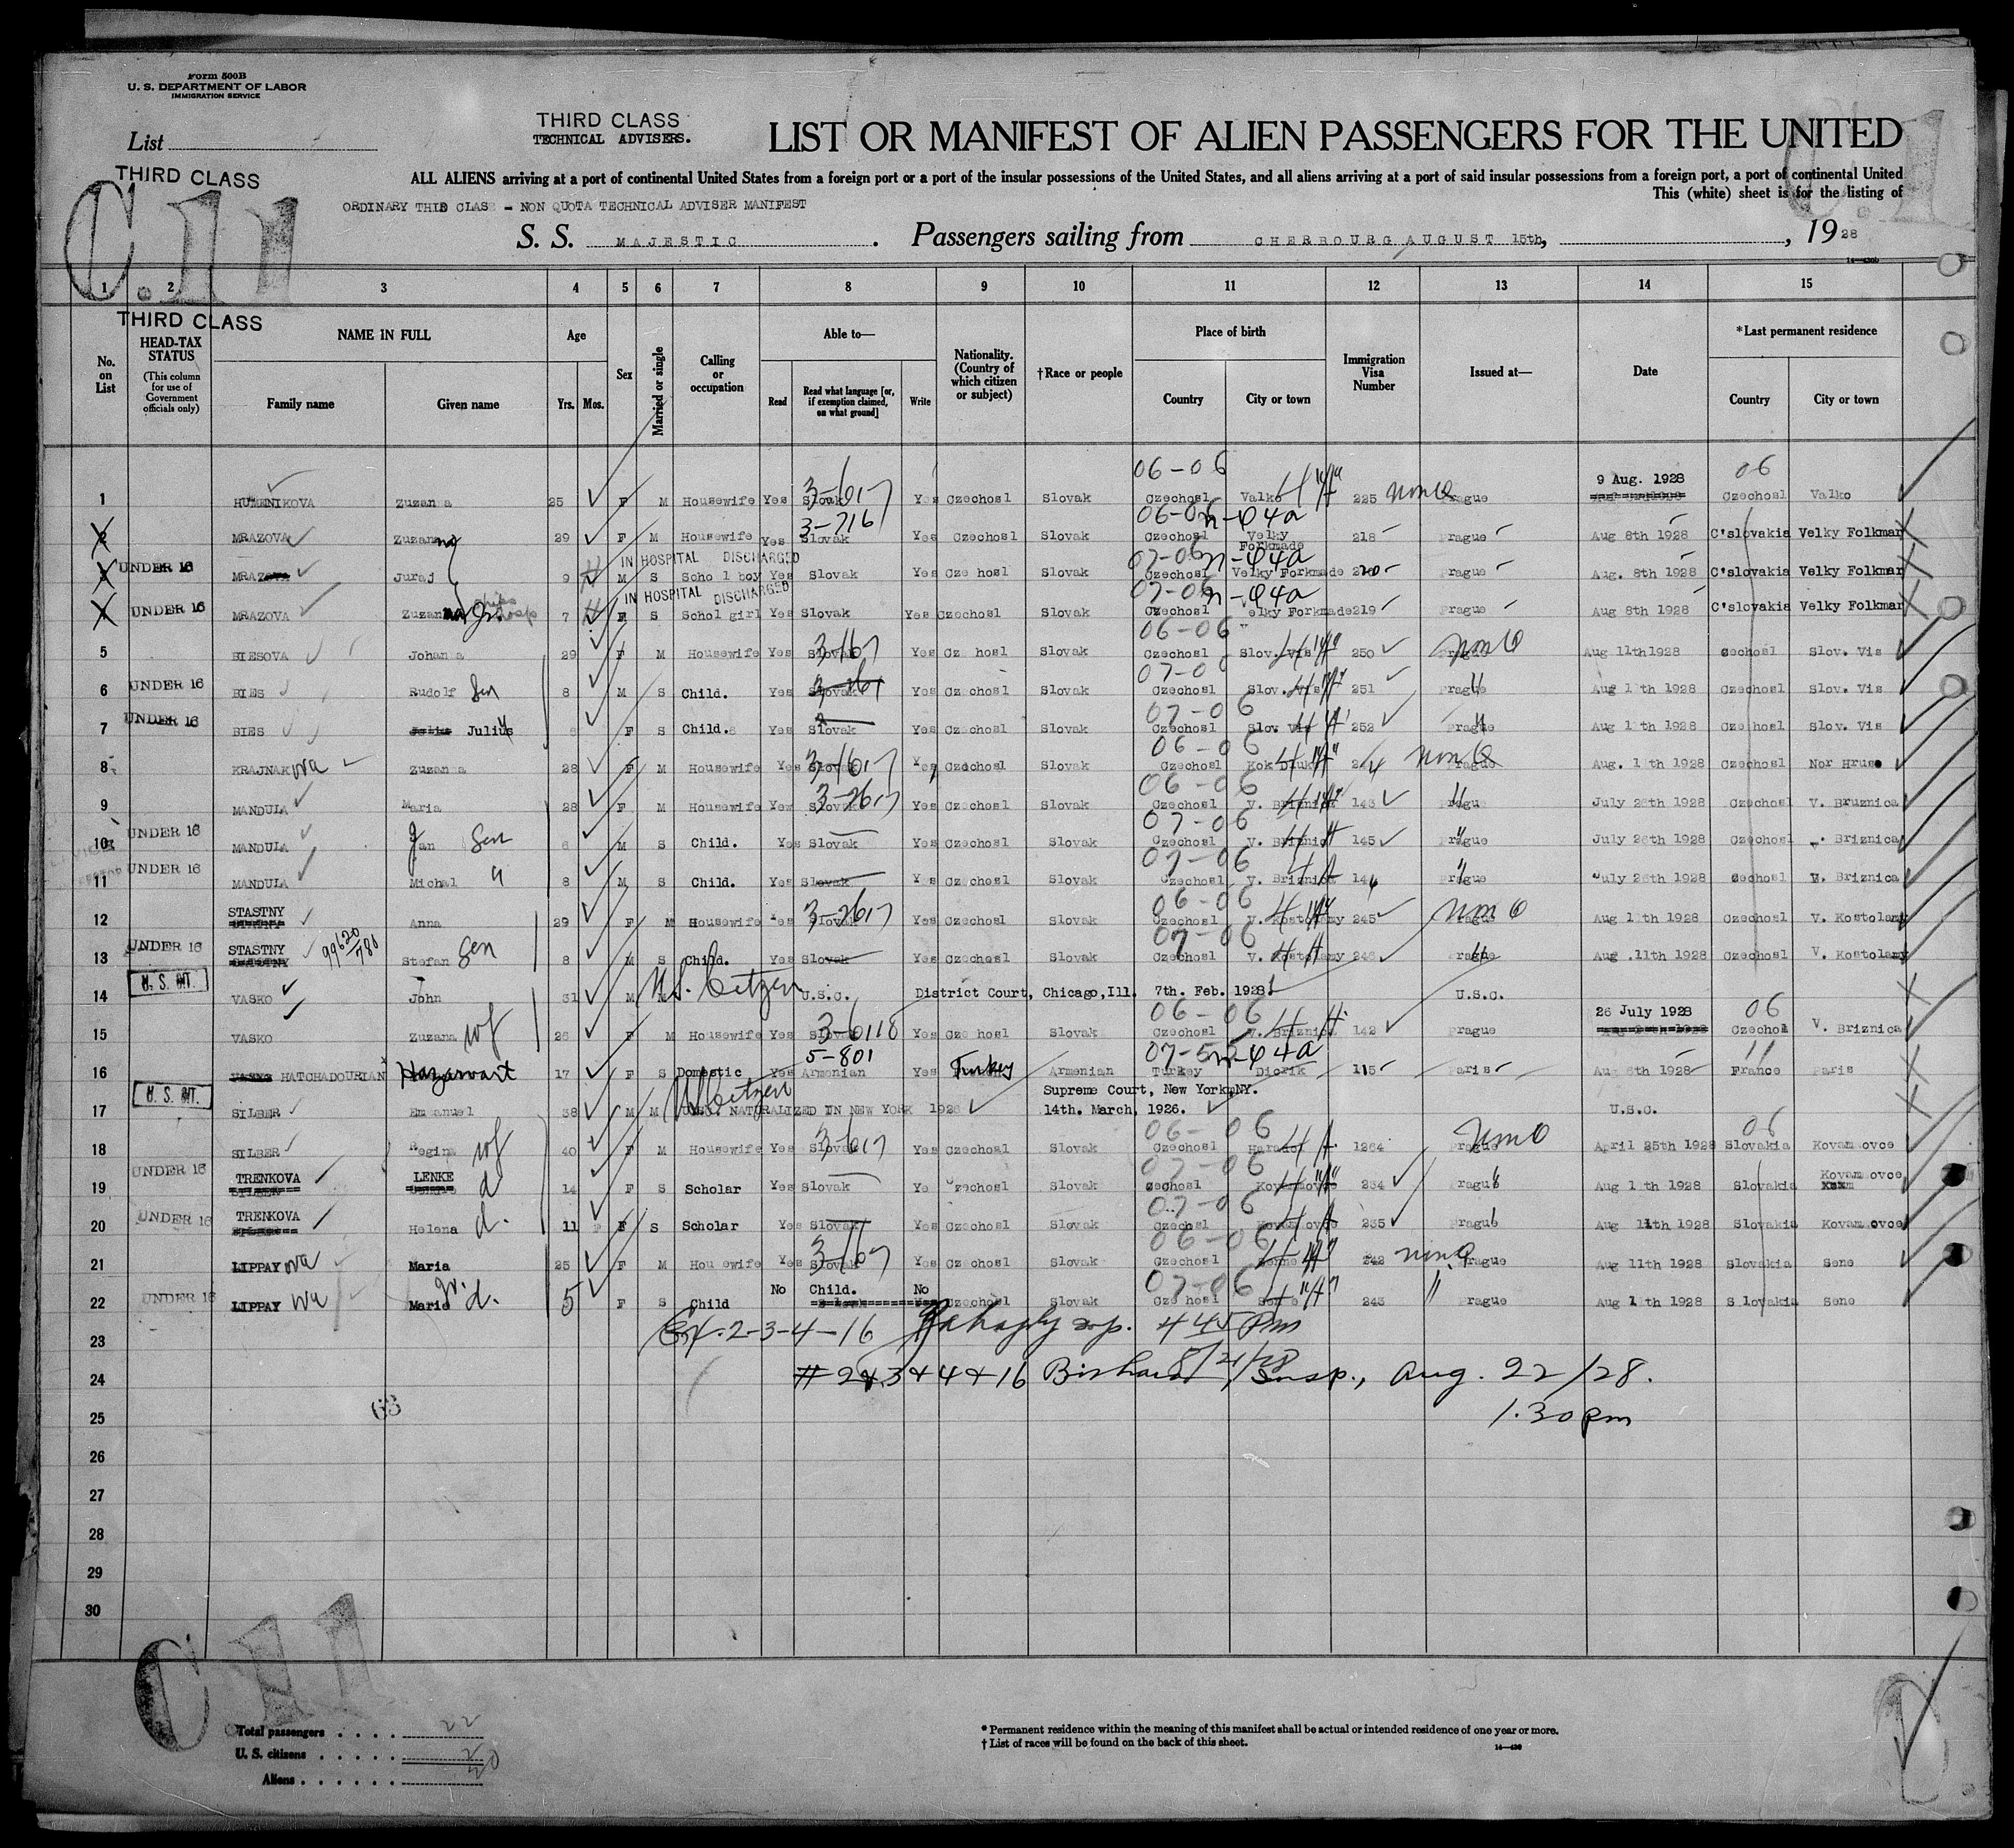 Form 500B
U. S. DEPARTMENT OF LABOR
IMMIGRATION SERVICE
List
THIRD CLASS
TECHNICAL ADVISERS.
LIST OR MANIFEST OF ALIEN PASSENGERS FOR THE UNITED
THIRD CLASS
ALL ALIENS arriving at a port of continental United States from a foreign port or a port of the insular possessions of the United States, and all aliens arriving at a port of said insular possessions from a foreign port, a port of continental United
This (white) sheet is for the listing of
ORDINARY THID CLASS - NON QUOTA TECHNICAL ADVISER MANIFEST
C.11
C.1
S. S. MAJESTIC. Passengers sailing from CHERBOURG, AUGUST 15th, , 1928
14-430b
1 2 3 4 5 6 7 8 9 10 11 12 13 14 15
THIRD CLASS
No. on List
HEAD-TAX STATUS
(This column for use of Government officials only)
NAME IN FULL
Family name Given name
Age
Yrs. Mos.
Sex
Married or single
Calling or occupation
Able to—
Read
Read what language [or, if exemption claimed, on what ground]
Write
Nationality. (Country of which citizen or subject)
†Race or people
Place of birth
Country City or town
Immigration Visa Number
Issued at—
Date
*Last permanent residence
Country City or town
06-06 06
1 HUMENIKOVA Zuzana 25 F M Housewife Yes Slovak Yes Czechosl Slovak Czechosl Valko 225 Prague 9 Aug. 1928 Czechosl Valko
3-716
2 MRAZOVA Zuzanna 29 F M Housewife Yes Slovak Yes Czechosl Slovak Czechosl Velky Folkmade 218 Prague Aug 8th 1928 C'slovakia Velky Folkmar
IN HOSPITAL DISCHARGED
3 UNDER 16 MRAZ Juraj 9 M S Schol boy Yes Slovak Cze hosl Slovak Czechosl Velky Forkmade 220 Prague Aug. 8th 1928 C'slovakia Velky Folkmar
IN HOSPITAL DISCHARGED
4 UNDER 16 MRAZOVA Zuzanna 7 F S Schol girl Yes Slovak Yes Czechosl Slovak Czechosl Velky Forkmade 219 Prague Aug 8th 1928 C'slovakia Velky Folkmar
06-06
5 BIESOVA Johana 29 F M Housewife Yes Slovak Yes Cz hosl Slovak Czechosl Slov. Vis 250 Prague Aug 11th 1928 Czechosl Slov. Vis
6 UNDER 16 BIES Rudolf Son 8 M S Child. Yes Slovak Yes Czechosl Slovak Czechosl Slov. Vis 251 Prague Aug 11th 1928 Czechosl Slov. Vis
07-06
7 UNDER 16 BIES Julius F S Child. Yes Slovak Yes Czechosl Slovak Czechosl Slov Vis 252 Prague Aug 11th 1928 Czechosl Slov. Vis
06-06
8 KRAJNAKova Zuzanna 28 F M Housewife Yes Slovak Yes Czechosl Slovak Czechosl Prague Aug. 11th 1928 Czechosl Nor Hruso
06-06
9 MANDULA Maria 28 F M Housewife Yes Slovak Yes Czechosl Slovak Czechosl V. Briznica 143 Prague July 26th 1928 Czechosl V. Bruznica
07-06
10 UNDER 16 MANDULA Jan Son 6 M S Child. Yes Slovak Yes Czechosl Slovak Czechosl V. Briznica 145 Prague July 26th 1928 Czechosl V. Briznica
07-06
11 UNDER 16 MANDULA Michal " 8 M S Child. Yes Slovak Yes Czechosl Slovak Czechosl V. Briznica 144 Prague July 26th 1928 Czechosl V. Briznica
06-06
12 STASTNY Anna 29 F M Housewife Yes Slovak Yes Czechosl Slovak Czechosl V. Kostolany 245 Prague Aug 11th 1928 Czechosl V. Kostolany
07-06
13 UNDER 16 STASTNY Stefan Son 8 M S Child. Yes Slovak Yes Czechosl Slovak Czechosl V. Kostolamy 246 Prague Aug .11th 1928 Czechosl V. Kostolamy
14 U. S. CIT. VASKO John 31 M M U.S. Citizen U.S.C. District Court, Chicago, Ill. 7th. Feb. 1928 U.S.C.
06-06 06
15 VASKO Zuzana wf 26 F M Housewife Yes Slovak Yes Cze hosl Slovak Czechosl V. Briznica 142 Prague 26 July 1928 Czechosl V. Briznica
5-801
16 HATCHADOURIAN Hazarvart 17 F S Domestic Yes Armenian Yes Turkey Armenian Turkey Diorik 115 Paris Aug 8th 1928 France Paris
17 U. S. CIT. SILBER Emanuel 38 M M US Citizen U.S.C. NATURALIZED IN NEW YORK 1926 Supreme Court, New York, NY. 14th. March, 1926. U.S.C.
06-06 06
18 SILBER Regina wf 40 F M Housewife Yes Slovak Yes Czechosl Slovak Czechosl 1264 Prague April 25th 1928 Slovakia Kovamovce
07-06
19 UNDER 16 TRENKOVA LENKE d 14 F S Scholar Yes Slovak Ye Czechosl Slovak Czechosl 234 Prague Aug 11th 1928 Slovakia Kovamovce
07-06
20 UNDER 16 TRENKOVA Helena d. 11 F S Scholar Yes Slovak Yes Czechosl Slovak Czechosl 235 Prague Aug 11th 1928 Slovakia Kovamovce
06-06
21 LIPPAYova Maria 25 F M Housewife Yes Slovak Yes Czechosl Slovak Czechosl 242 Prague Aug 11th 1928 Slovakia Sene
07-06
22 UNDER 16 LIPPAY ova Marie d. 5 F S Child No Child. No Czechosl Slovak Cze hosl 243 " Prague Aug 11th 1928 Slovakia Sene
23 2-3-4-16 445 Pm
8/21/28
24 #2&3+4+16 Insp., Aug. 22/28.
25 1.30 pm
63
26
27
28
29
30
C 11
Total passengers . . . . 22
U. S. citizens . . . . . 2
Aliens . . . . . . 20
* Permanent residence within the meaning of this manifest shall be actual or intended residence of one year or more.
† List of races will be found on the back of this sheet.
14-430